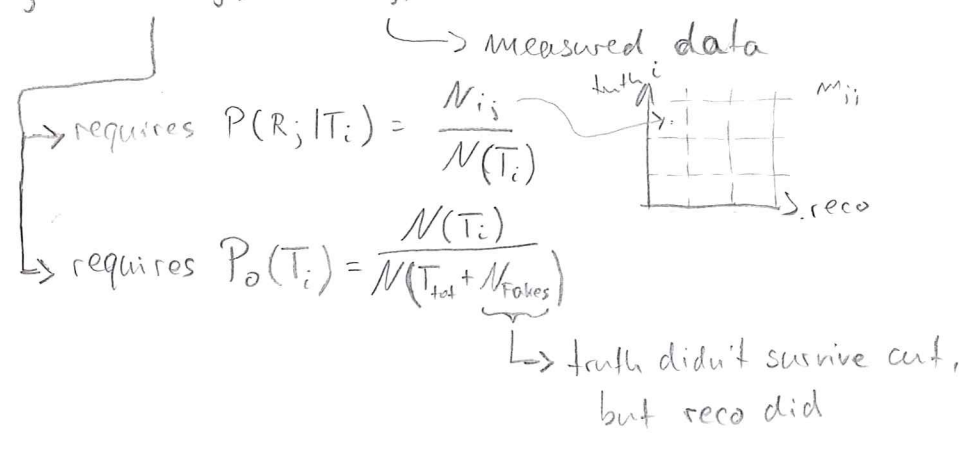 ↳ measured data
truth i
m_ij
→ requires P(R_j|T_i) = N_ij / N(T_i)
→ reco
↳ requires P_0(T_i) = N(T_i) / N(T_tot + N_Fakes)
↳ truth didn't survive cut,
but reco did